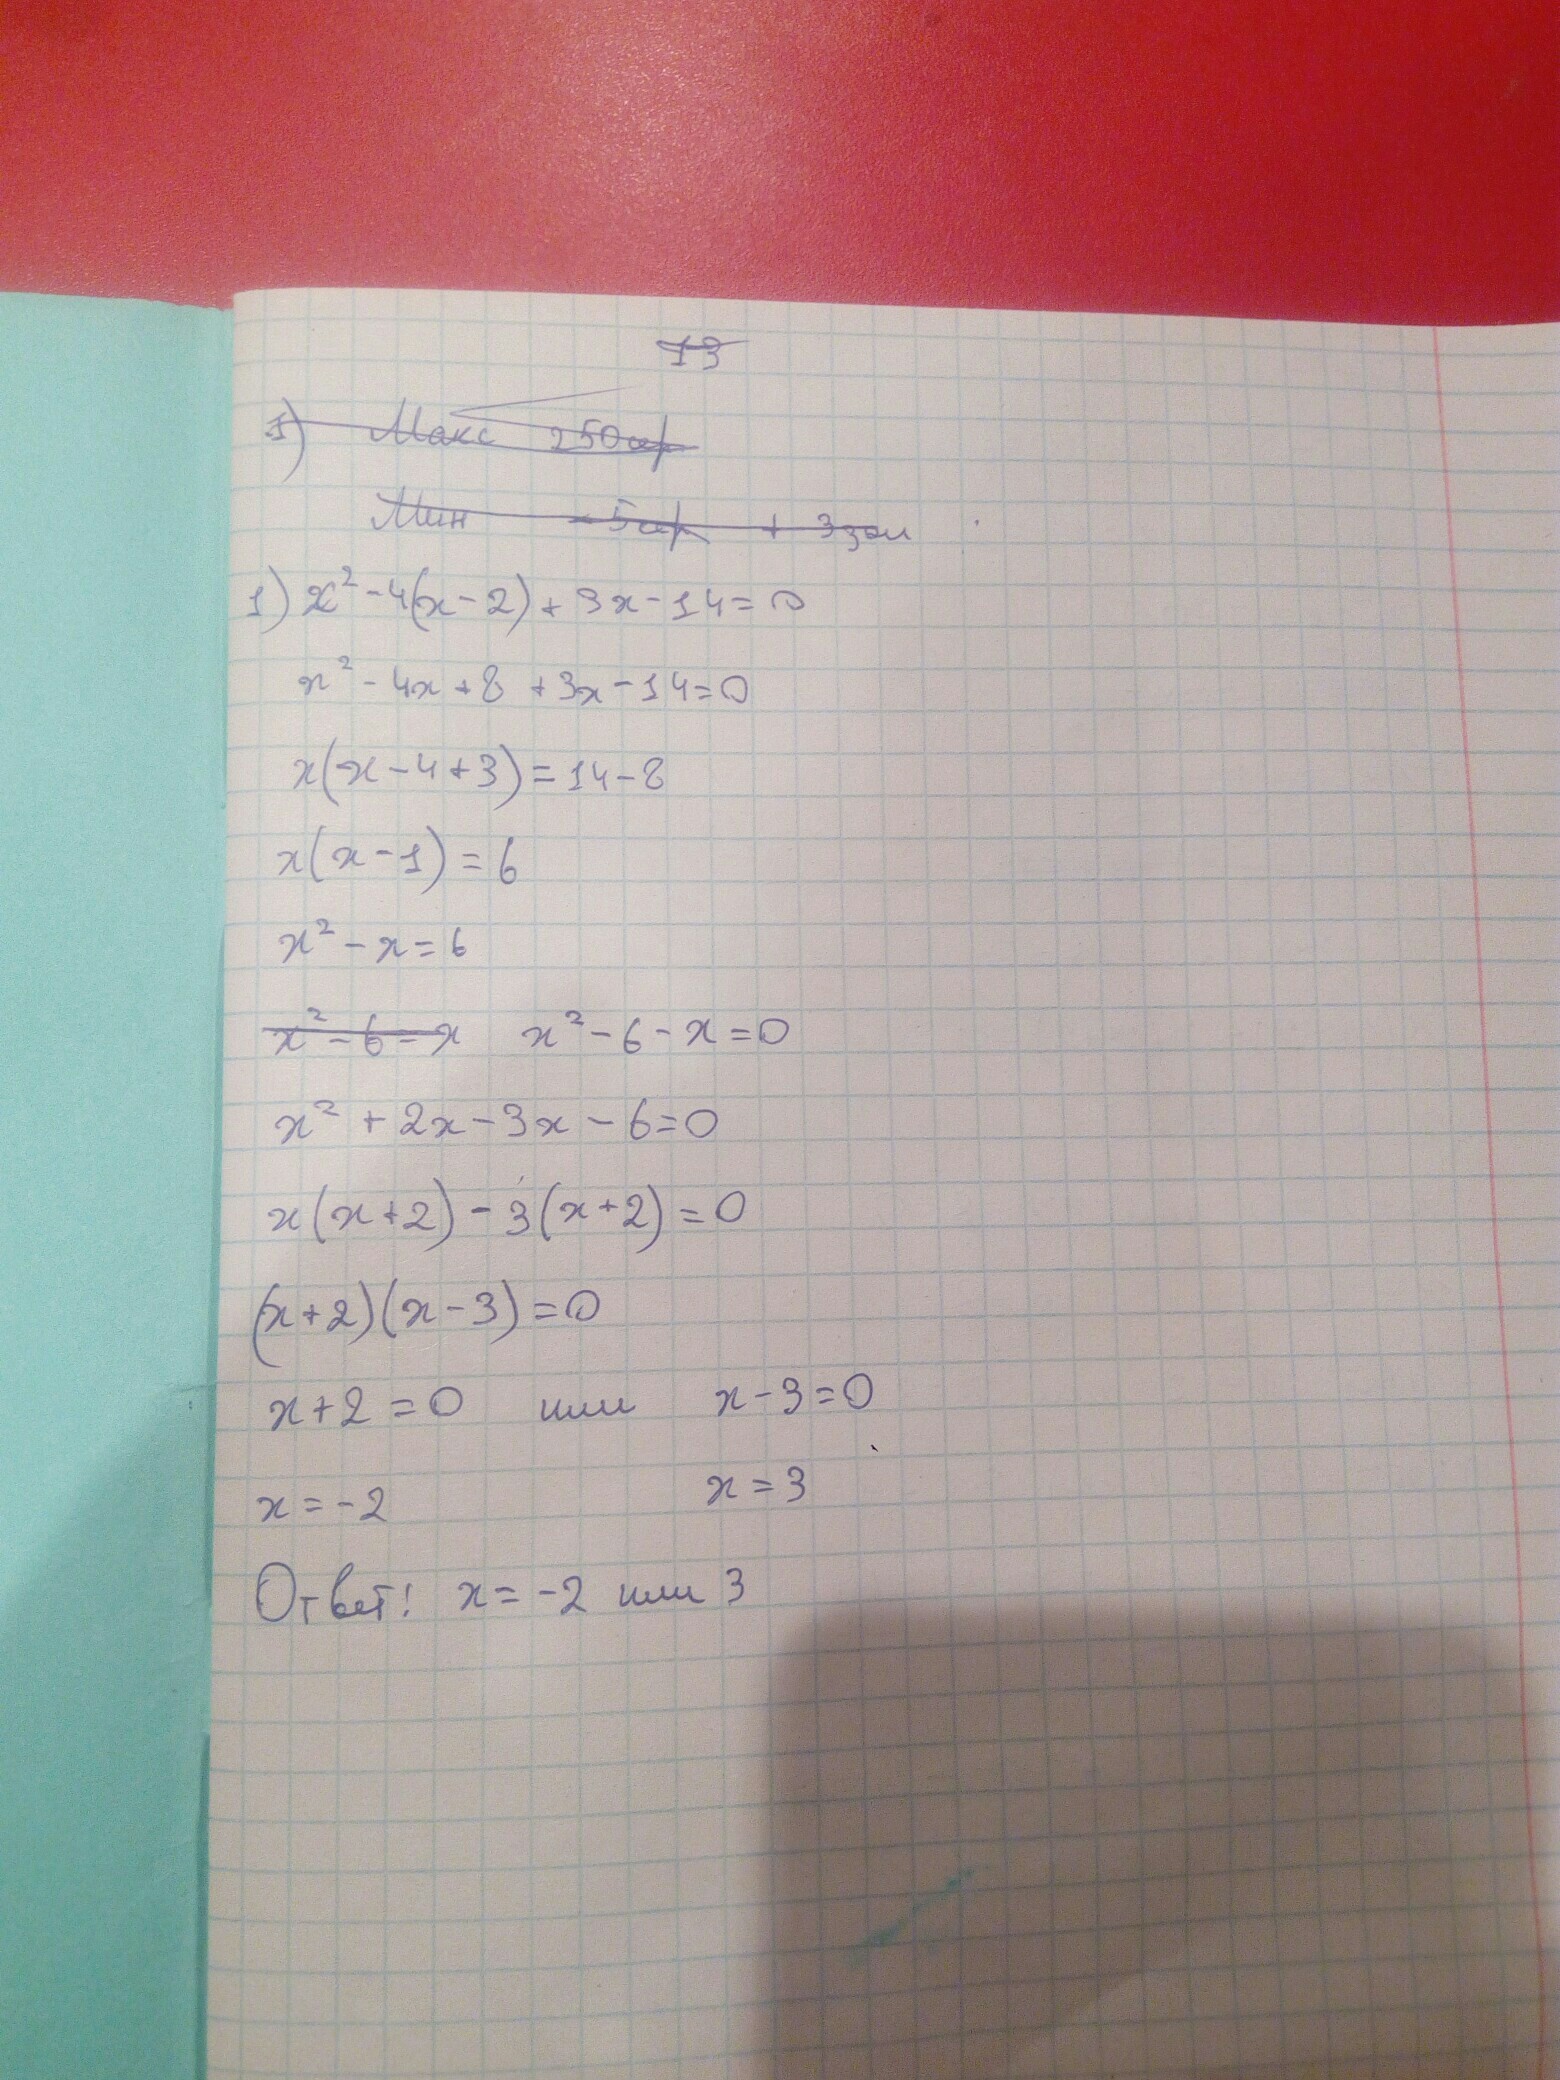 13
1) Макс 250 сер
Мин - 5 сер + 3 зол
1) x² - 4(x - 2) + 3x - 14 = 0
x² - 4x + 8 + 3x - 14 = 0
x(x - 4 + 3) = 14 - 8
x(x - 1) = 6
x² - x = 6
x² - 6 = x x² - 6 - x = 0
x² + 2x - 3x - 6 = 0
x(x + 2) - 3(x + 2) = 0
(x + 2)(x - 3) = 0
x + 2 = 0 или x - 3 = 0
x = -2 x = 3
Ответ: x = -2 или 3